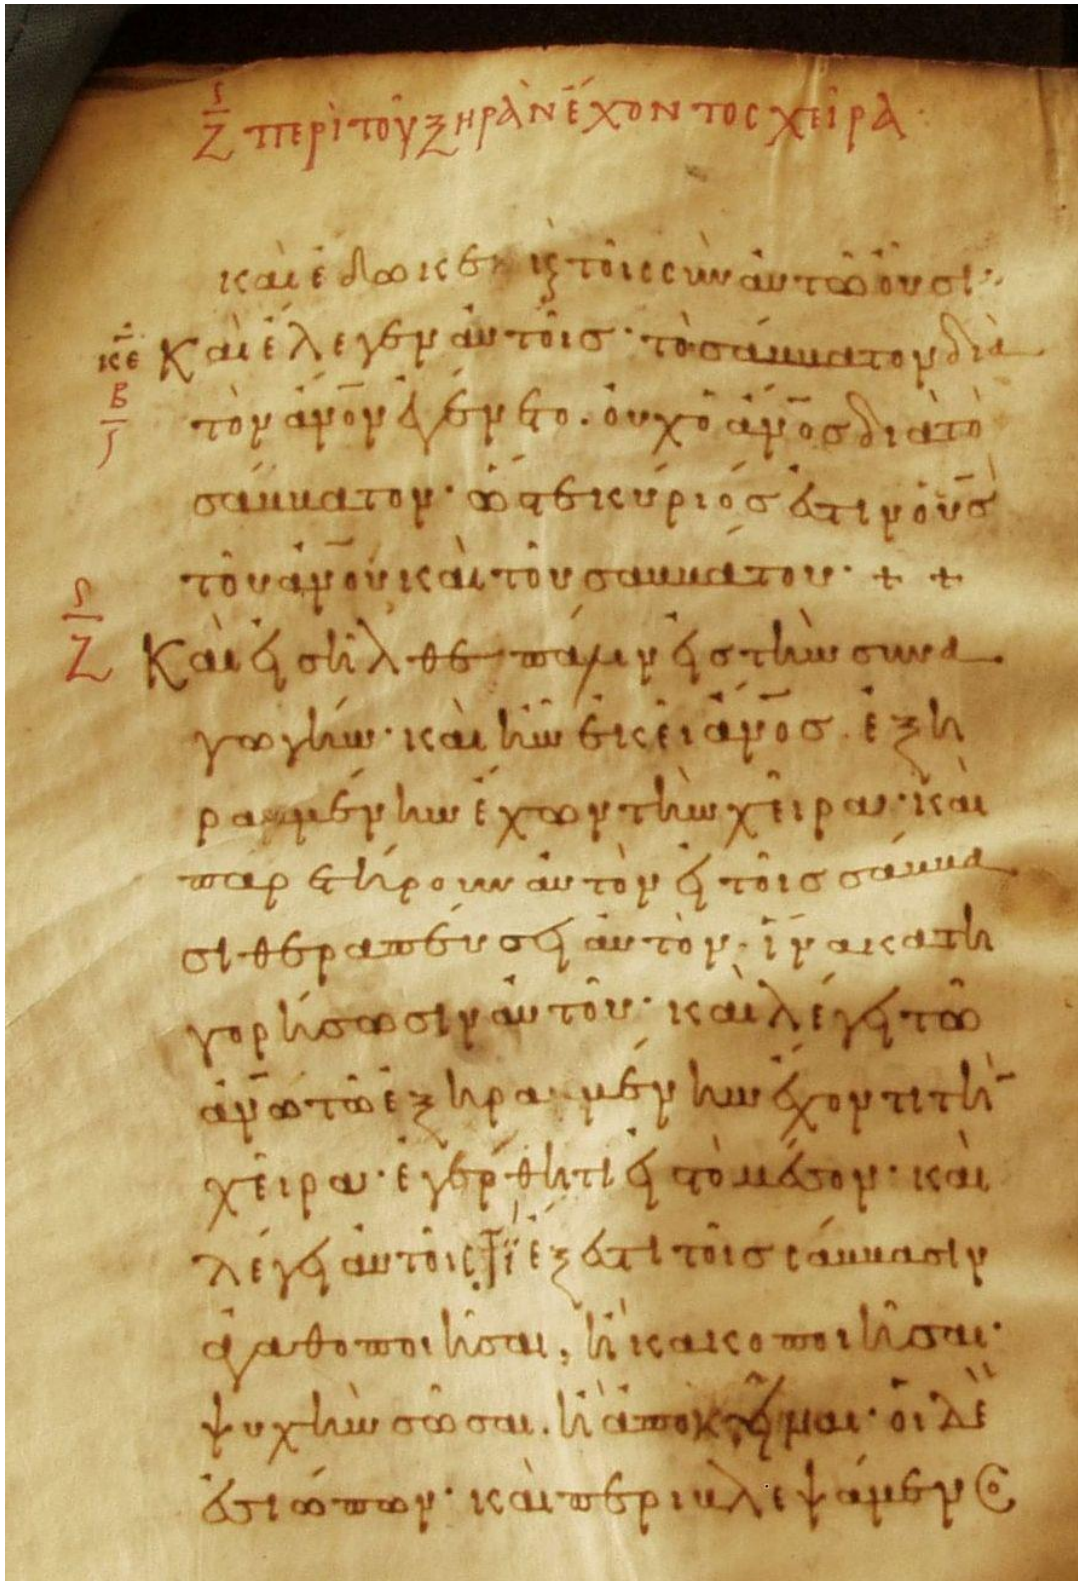 Ϛ Ζ περὶ τοῦ ξηρὰν ἔχοντος χεῖρα
καὶ ἔδωκεν κ, τοῖς σὺν αὐτῶ οὖσι·
κε Καὶ ἔλεγεν αὐτοῖς· τὸ σάββατον διὰ
Β Ϛ τὸν ἄνον ἐγένετο. οὐχ ὁ ἄνος διὰ τὸ
σάββατον· ὥστε κύριός ἐστιν ὁ υς
τοῦ ἀνου καὶ τοῦ σαββάτου· + +
Ϛ Ζ Καὶ εἰσῆλθε πάλιν εἰς τὴν συνα
γωγήν· καὶ ἦν ἐκεῖ ἄνος. ἐξη
ραμμένην ἔχων τὴν χεῖρα· καὶ
παρετήρουν αὐτὸν εἰ τοῖς σάββα
σι θεραπεύσει αὐτόν. ἵνα κατη
γορήσωσιν αὐτοῦ· καὶ λέγει τῶ
ἀνω τῶ ἐξηραμμένην ἔχοντι τὴν
χεῖρα· ἐγέρθητι εἰς τὸ μέσον· καὶ
λέγει αὐτοῖς τί ἔξεστι τοῖς σάββασιν
ἀγαθοποιῆσαι, ἢ κακοποιῆσαι·
ψυχὴν σῶσαι. ἢ ἀποκτεῖναι· οἱ δὲ
ἐσιώπων· καὶ περιβλεψάμενος